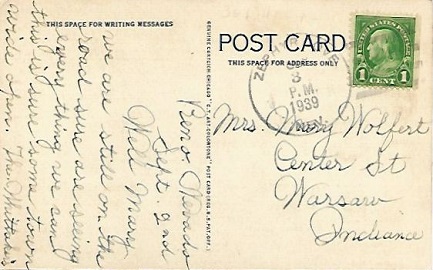 THIS SPACE FOR WRITING MESSAGES
Reno, Nevada
Sept. 2nd
Well Mary
we are still on the
road sure are seeing
every thing we can
this is sure some town
wide open. The Mittah's
GENUINE CURTEICH-CHICAGO "C.T. ART-COLORTONE" POST CARD (REG. U.S. PAT. OFF.)
POST CARD
THIS SPACE FOR ADDRESS ONLY
3
P.M.
1939
NEV.
UNITED STATES POSTAGE
1 CENT 1
Mrs. Mary Wolfert
Center St
Warsaw
Indiana